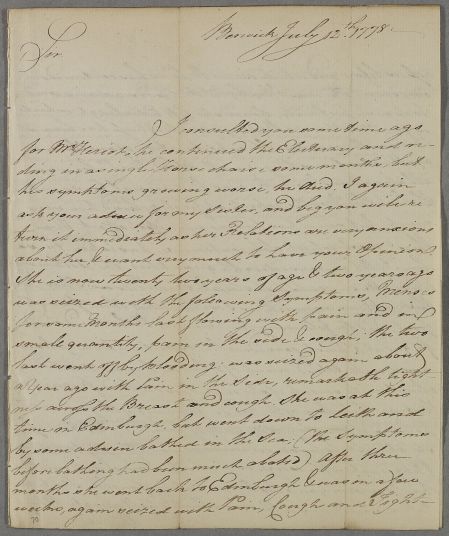 Berwick July 12th. 1778.
Sir
I consulted you some time ago
for Mr Heriot, he continued the Electuary and ri-
ding in a single Horse chaise some months, but
his symptoms growing worse, he died. I again
ask your advice for my Sister, and beg you will re
turn it immediately as her Relations are very anxious
about her, & want very much to have your Opinion
She is now twenty two years of age & two years ago
was seized with the following Symptoms,
for some Months last flowing with pain and in
small quantity, pain in the side & cough; the two
last went off by blooding: was seized again about
a Year ago with Pain in the Side, remarkable tight
ness across the Breast and cough. She was at this
time in Edinburgh, but went down to Leith and
by some advice bathed in the Sea, (The Symptoms
before bathing had been much abated) After three
months she went back to Edinburgh & was in a few
weeks, again seized with Pain, Cough and Tight-
70